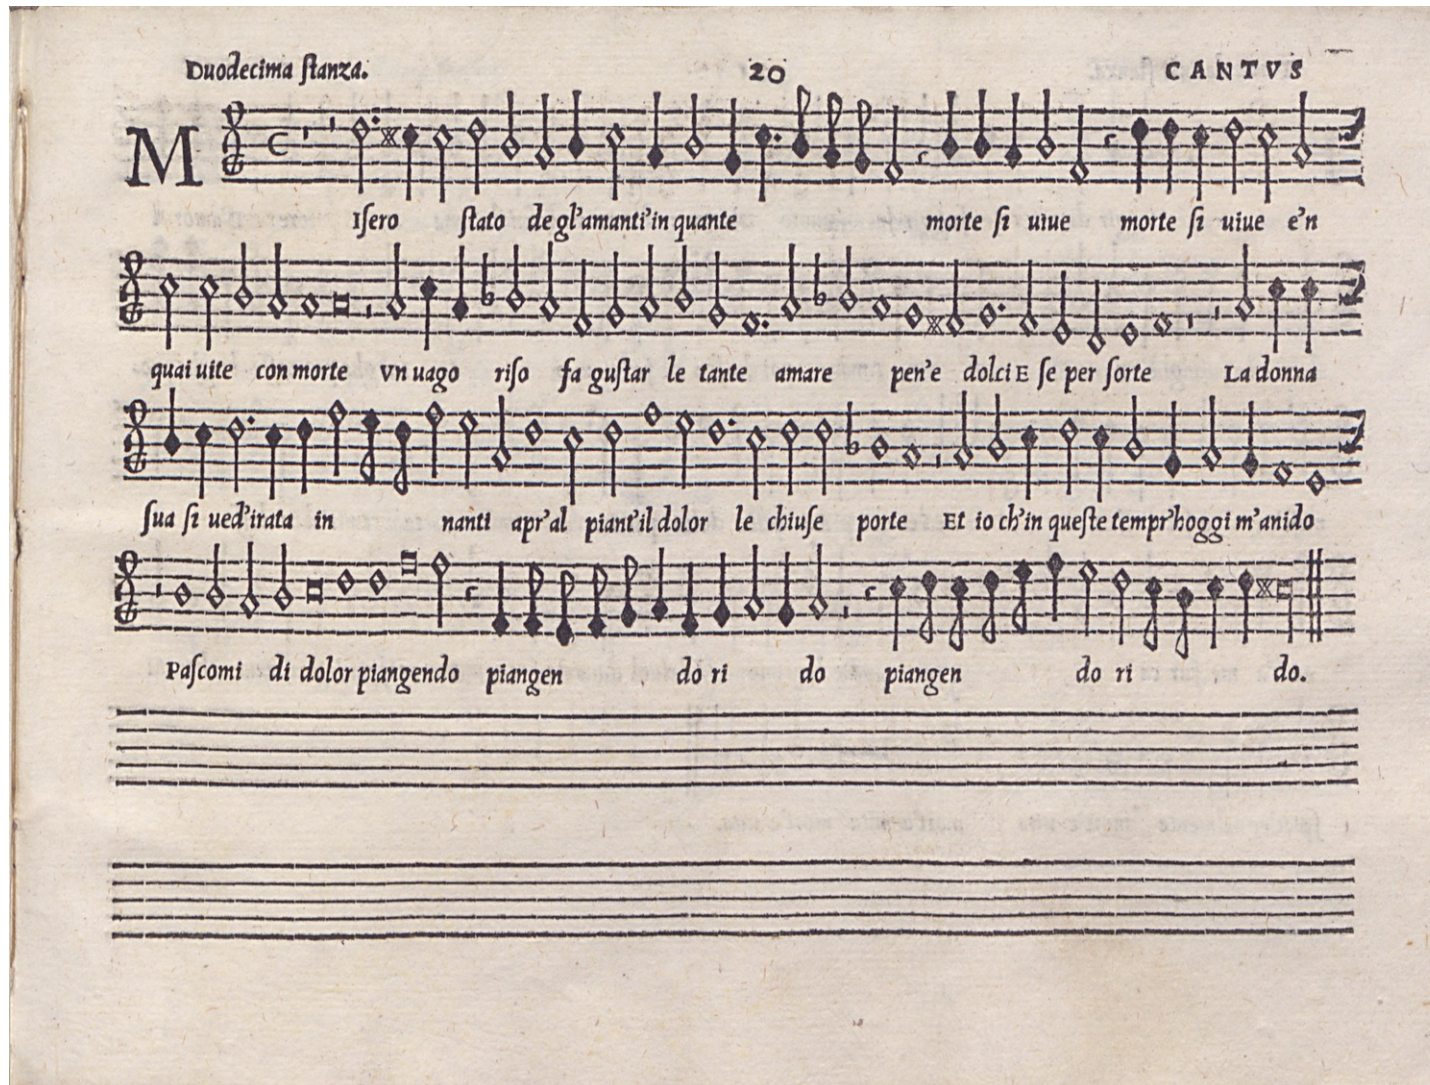 Duodecima ſtanza. 20 CANTVS
MIſero ſtato de gl'amanti'in quante morte ſi uiue morte ſi uiue e'n
quai uite con morte vn uago riſo fa guſtar le tante amare pen'e dolci E ſe per ſorte La donna
ſua ſi ued'irata in nanti apr'al piant'il dolor le chiuſe porte Et io ch'in queſte tempr'hoggi m'anido
Paſcomi di dolor piangendo piangen do ri do piangen do ri do.